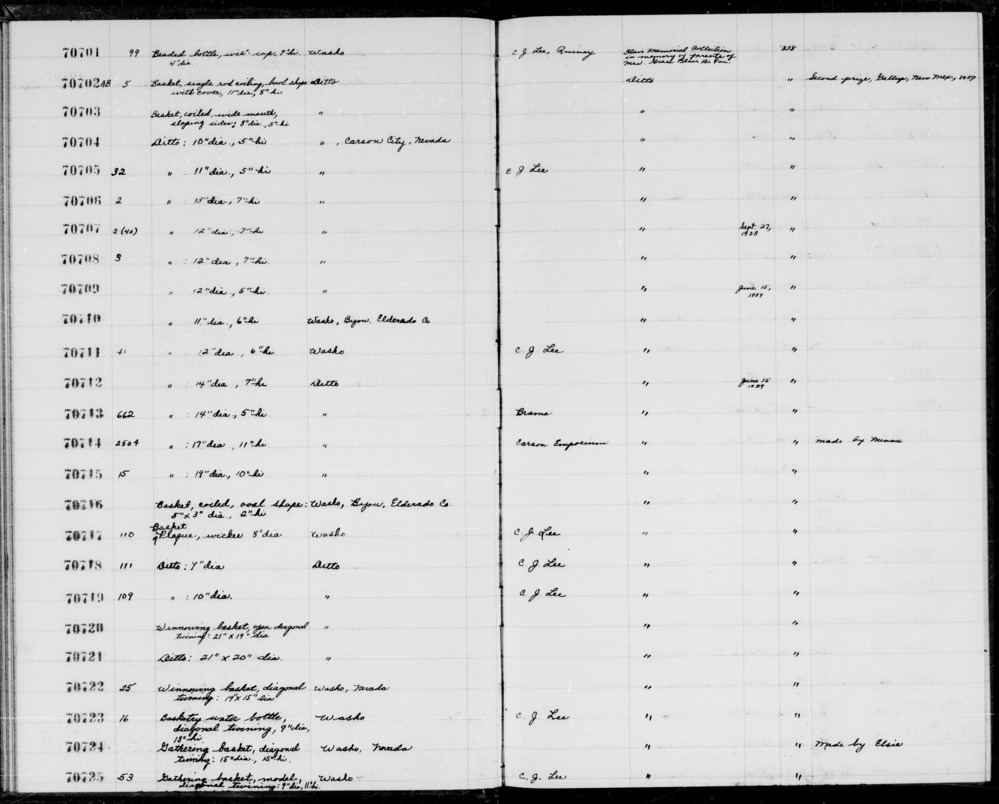 70701 99 Beaded bottle, with cap, 9" hi. Washo C J Lee, Quincy Blair Memorial Collection 338
4" dia in memory of parents of
Mrs. Grace Blair
70702AB 5 Basket, single rod coiling, bowl shape Ditto Ditto " Second prize, Gallup, New Mex.,
with cover, 11" dia, 8" hi.
70703 Basket, coiled, wide mouth, " " "
sloping sides; 8" dia, 5" hi
70704 Ditto: 10" dia., 5" hi ", Carson City, Nevada " "
70705 32 " : 11" dia., 5" hi " C J Lee " "
70706 2 " 13" dia., 7" hi " " "
70707 2 (40) " 12" dia., 7" hi " " Sept. 27, "
1938
70708 3 " : 12" dia., 7" hi. " " "
70709 " 12" dia., 5" hi. " " June 15, "
1939
70710 " 11" dia., 6" hi Washo, Bijou, Elderado Co " "
70711 41 " 12" dia., 6" hi Washo C J Lee " "
70712 " : 14" dia., 7" hi Ditto " June 15 "
1939
70713 662 " : 14" dia., 5" hi " Brame " "
70714 2504 " : 17" dia., 11" hi " Carson Emporium " " made by Minnie
70715 15 " : 19" dia., 10" hi " " "
70716 Basket, coiled, oval shape: Washo, Bijou, Elderado Co " "
5" x 3" dia., 2" hi
Basket
70717 110 Plaque, wicker 8" dia Washo C. J. Lee " "
70718 111 Ditto: 9" dia Ditto C J Lee " "
70719 109 " : 10" dia. " C J Lee " "
70720 Winnowing basket, open diagonal " " "
twining: 21" x 19" dia
70721 Ditto: 21" x 20" dia. " " "
70722 25 Winnowing basket, diagonal Washo, Nevada " "
twining: 19" x 15" dia
70723 16 Basketry water bottle, Washo C. J. Lee " "
diagonal twining, 9" dia,
13" hi.
70724 Gathering basket, diagonal Washo, Nevada " " Made by Elsie
twining: 15" dia., 15" hi.
70725 53 Gathering basket, model, Washo C. J. Lee " "
diagonal twining: 9" dia, 11" hi.